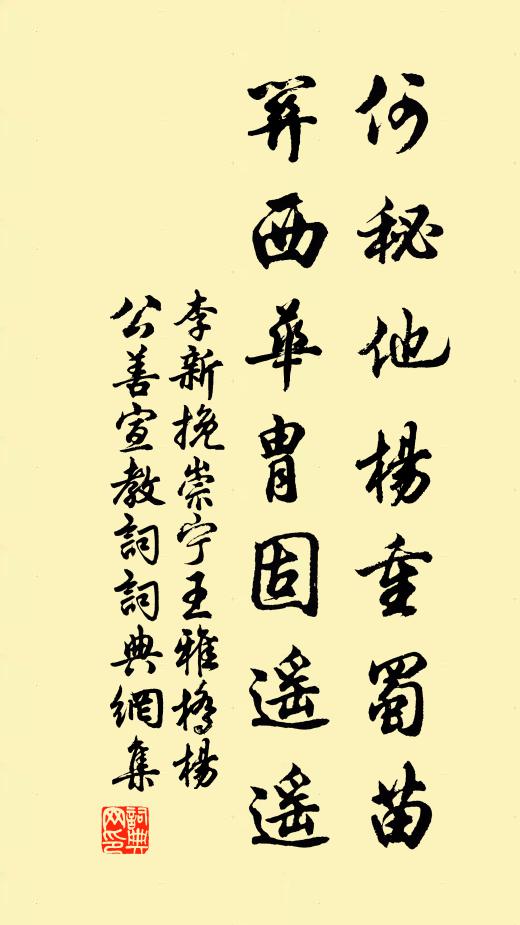 何秘他楊重蜀苗
关西華胄固遥遥
李新挽崇宁王雅橋楊
公善宣教詞詞典網集
詞典网印